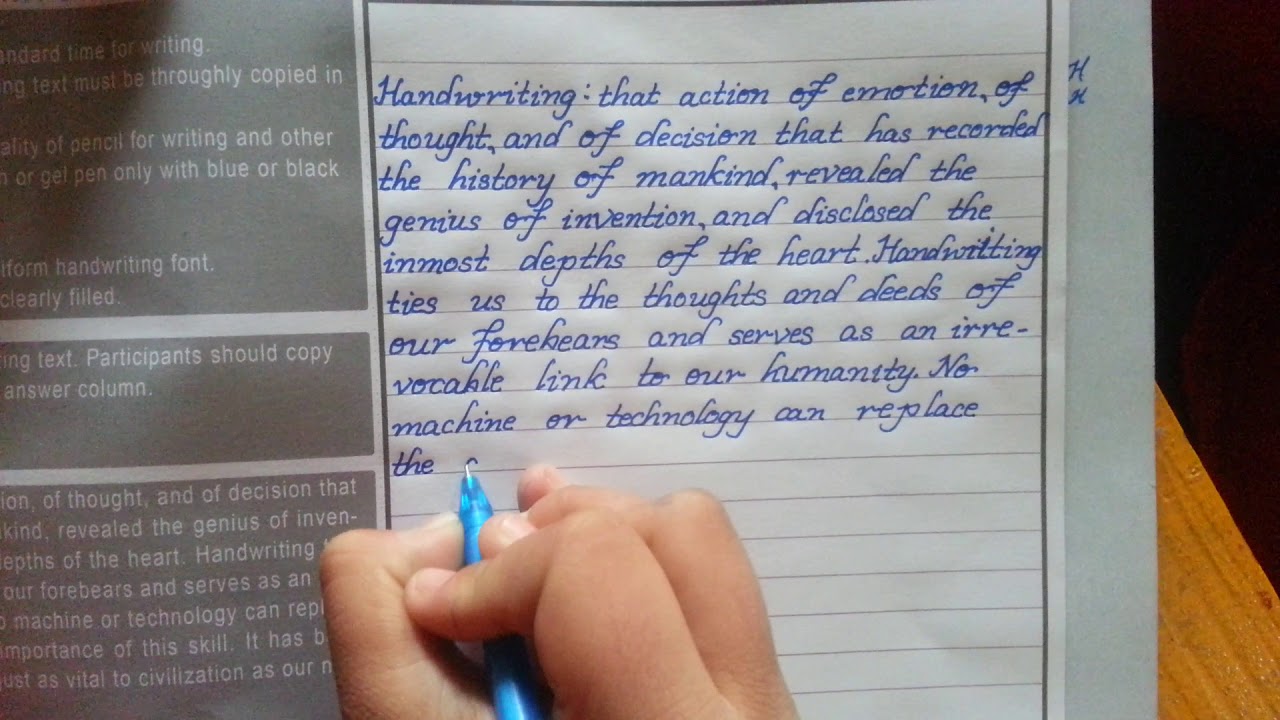 ndard time for writing.
ng text must be throughly copied in
ality of pencil for writing and other
or gel pen only with blue or black
iform handwriting font.
clearly filled.
ing text. Participants should copy
answer column.
ion, of thought, and of decision that
kind, revealed the genius of inven-
epths of the heart. Handwriting
our forebears and serves as an
machine or technology can repl
importance of this skill. It has b
ust as vital to civilization as our n
Handwriting: that action of emotion, of
thought, and of decision that has recorded
the history of mankind, revealed the
genius of invention, and disclosed the
inmost depths of the heart. Handwriting
ties us to the thoughts and deeds of
our forebears and serves as an irre-
vocable link to our humanity. No
machine or technology can replace
the
H
H